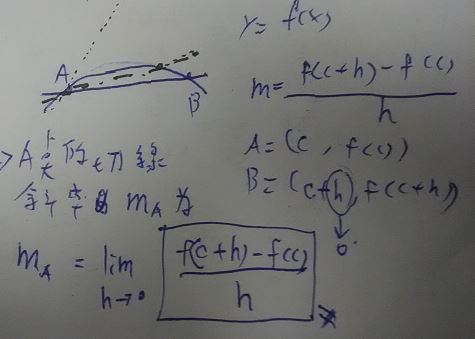 y = f(x)
A
B
m = \frac{f(c+h) - f(c)}{h}
A = (c, f(c))
B = (c+h, f(c+h))
↓
0
→ A 點的切線
斜率 m_A 為
m_A = \lim_{h→0} \frac{f(c+h) - f(c)}{h}